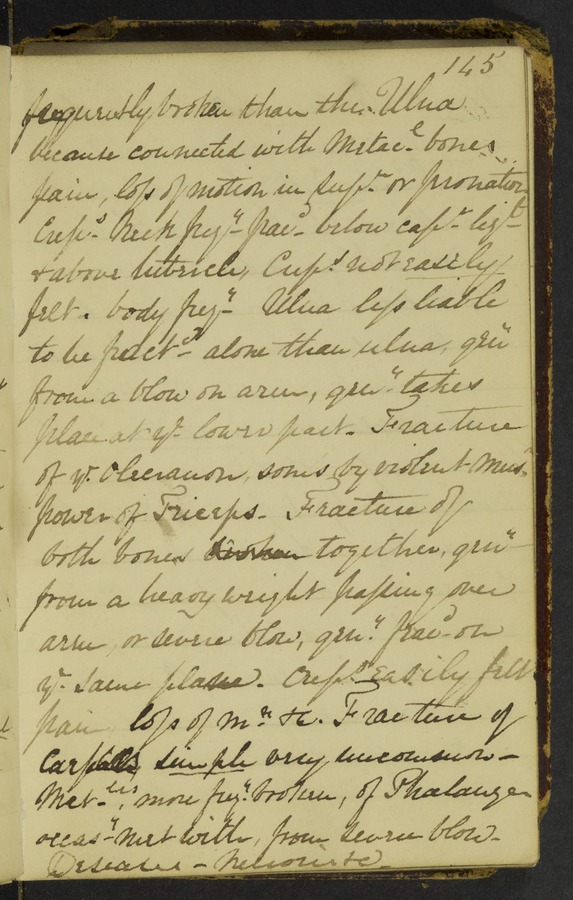 145
frequently broken than the Ulna
because connected with Metac^l bones
pain, loss of motion in sup^n or pronation
Crep^s. Neck freq^y frac^d below caps^r lig^t
& above tubercle, Crep^s not easily
felt. body freq^y Ulna less liable
to be fract^d alone than ulna, gen^y
from a blow on arm, gen^y takes
place at y^e lower part. Fracture
of y^e Olecranon, somes by violent Mus^r
power of Triceps. Fracture of
both bones together, gen^y
from a heavy weight passing over
arm, or severe blow, gen^y frac^d on
y^e same place. Crep^s easily felt
pain loss of m^n &c. Fracture of
Carpals simple very uncommon
Met^ls, more freq^y broken, of Phalanges
occas^y met with, from severe blow.
Disease - Necrosis &c